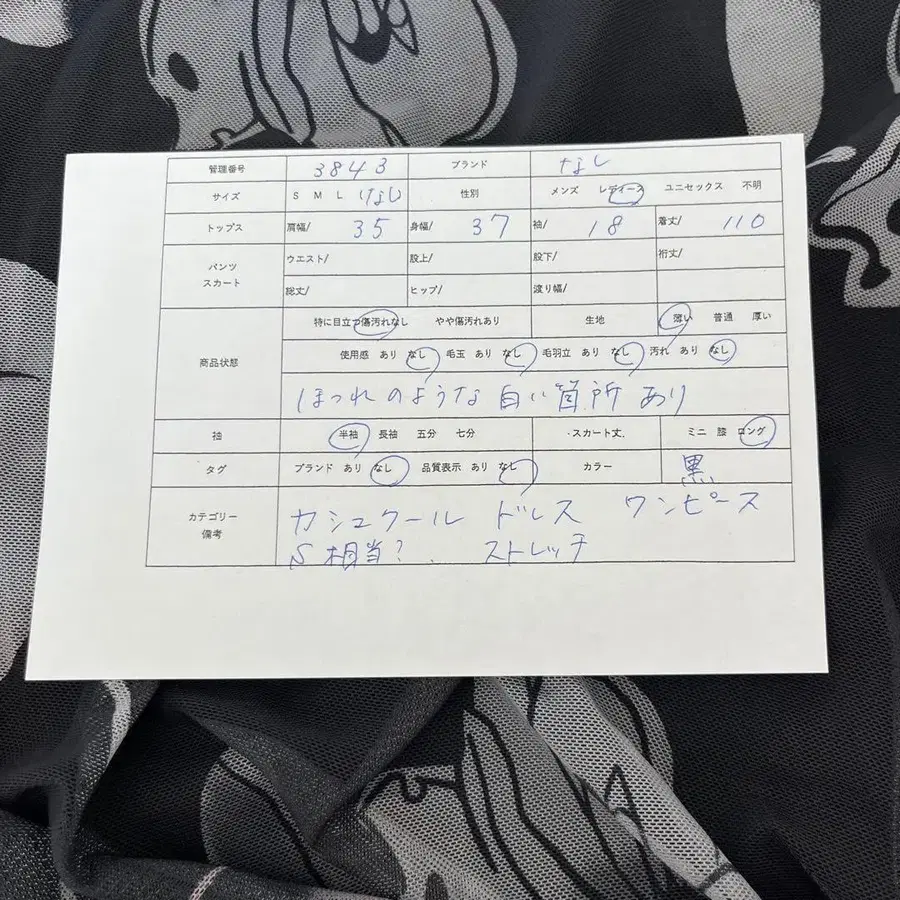 管理番号 3843 ブランド なし
サイズ S M L なし 性別 メンズ レディース ユニセックス 不明
トップス 肩幅/ 35 身幅/ 37 袖/ 18 着丈/ 110
パンツ スカート ウエスト/ 股上/ 股下/ 裄丈/
総丈/ ヒップ/ 渡り幅/
商品状態 特に目立つ傷汚れなし やや傷汚れあり 生地 薄い 普通 厚い
使用感 あり なし 毛玉 あり なし 毛羽立 あり なし 汚れ あり なし
ほつれのような白い箇所あり
袖 半袖 長袖 五分 七分 スカート丈 ミニ 膝 ロング
タグ ブランド あり なし 品質表示 あり なし カラー 黒
カテゴリー 備考 カシュクール ドレス ワンピース
S相当? ストレッチ